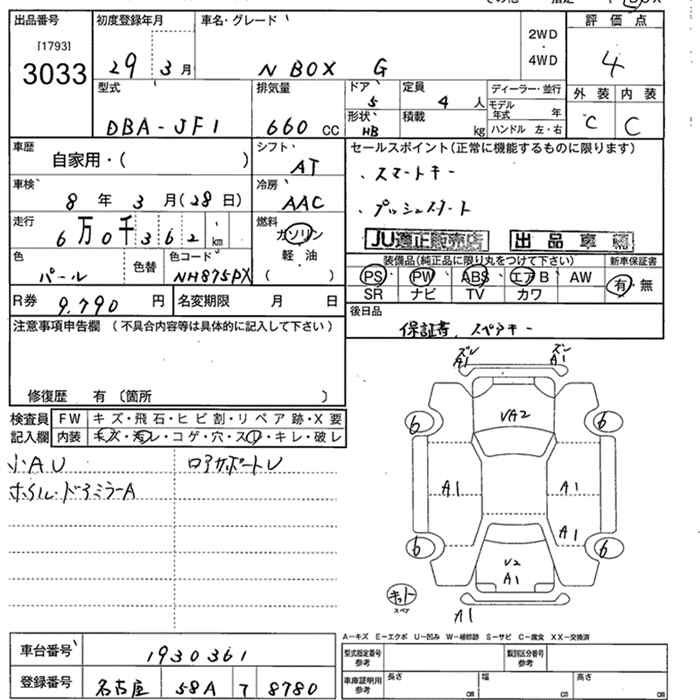 出品番号 初度登録年月 車名・グレード 評価点
[1793]
3033 29 3月 N BOX G 2WD・4WD 4
型式 排気量 ドア 5 定員 4人 ディーラー・並行 外装 内装
DBA-JF1 660cc 形状 HB 積載 kg モデル年式 年 C C
ハンドル 左・右
車歴 自家用・( ) シフト AT セールスポイント(正常に機能するものに限ります)
車検 8年3月(28日) 冷房 AAC ・スマートキー
走行 6万0千362km 燃料 ガソリン ・プッシュスタート
軽油 JU適正販売店 出品車輌
( )
色 パール 色替 色コード NH875PX
装備品(純正品に限り丸をつけて下さい) 新車保証書
PS PW ABS エアB AW 有・無
SR ナビ TV カワ
R券 9,790円 名変期限 月 日
後日品 保証書、スペアキー
注意事項申告欄 (不具合内容等は具体的に記入して下さい)
修復歴 有 (箇所 )
検査員 FW キズ・飛石・ヒビ割・リペア跡・X要
記入欄 内装 キズ・汚レ・コゲ・穴・スレ・キレ・破レ
小AU ロアサポートU
ホイル・ドアミラーA
A1 A1
VA2
6 6
A1 A1
A1
6 6
V2
A1
キット
スペア
A1
A-キズ E-エクボ U-凹み W-補修跡 S-サビ C-腐食 XX-交換済
車台番号 1930361
型式指定番号 参考 類別区分番号 参考
登録番号 名古屋 58A ワ 8780
車庫証明用 参考 長さ cm 幅 cm 高さ cm